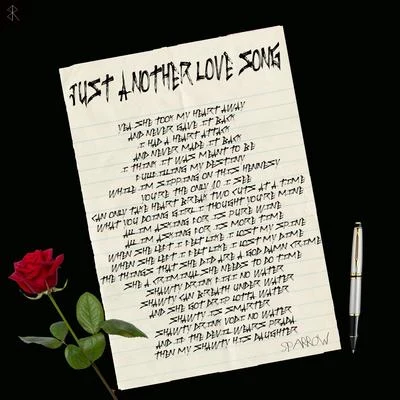 JUST ANOTHER LOVE SONG
YEA SHE TOOK MY HEART AWAY
AND NEVER GAVE IT BACK
I HAD A HEART ATTACK
AND NEVER MADE IT BACK
I THINK IT WAS MEANT TO BE
FULLFILLING MY DESTINY
WHILE IM SIPPING ON THIS HENNESY
YOU'RE THE ONLY 10 I SEE
CAN ONLY TAKE HEART BREAK TWO CUTS AT A TIME
WHAT YOU DOING GIRL I THOUGHT YOU'RE MINE
ALL IM ASKING FOR IS PURE WINE
ALL IM ASKING FOR IS MORE TIME
WHEN SHE LEFT I FELT LIKE I LOST MY SPINE
WHEN SHE LEFT I FELT LIKE I LOST MY DIME
THE THINGS THAT SHE DID ARE A GOD DAMN CRIME
SHE A CRIMINAL SHE NEEDS TO DO TIME
SHAWTY DRINK FIJI NO WATER
SHAWTY CAN BREATH UNDER WATER
AND SHE GOT DRIP LOTTA WATER
SHAWTY IS SMARTER
SHAWTY DRINK VODI NO WATER
AND IF THE DEVIL WEARS PRADA
THEN MY SHAWTY HIS DAUGHTER
SPARROW